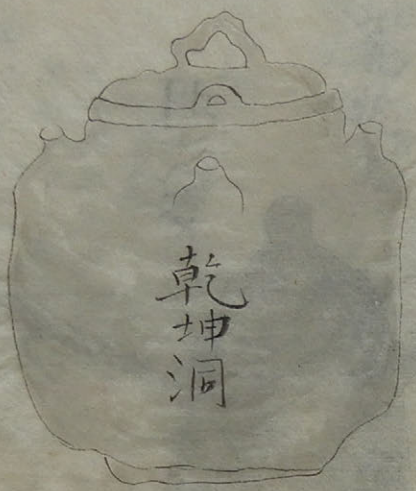 乾坤洞